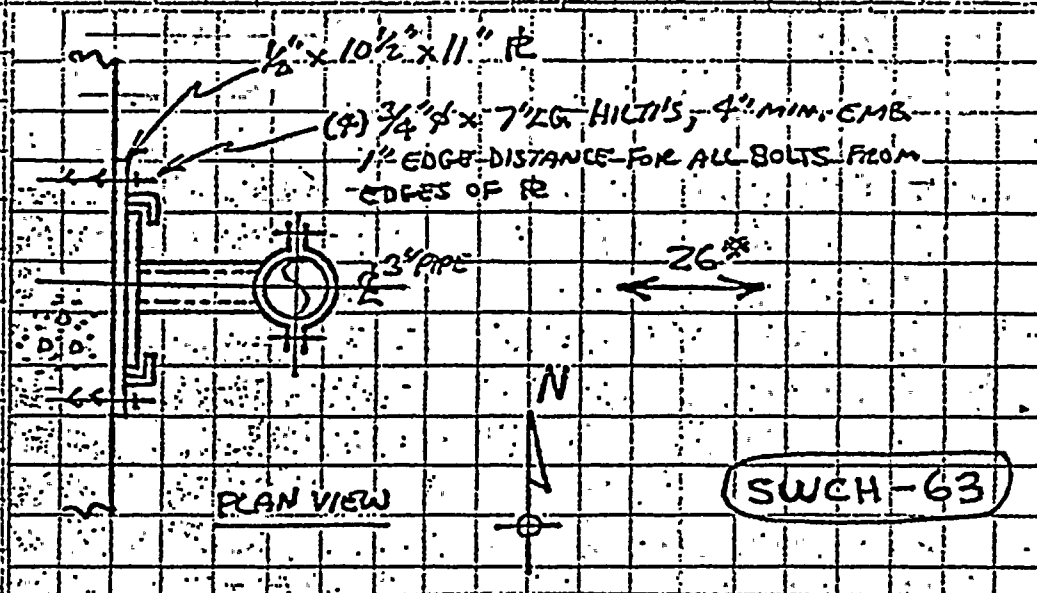 1/2" x 10 1/2" x 11" PL
(4) 3/4"φ x 7" LG HILTI'S, 4" MIN. EMB.
1" EDGE DISTANCE FOR ALL BOLTS FROM
EDGES OF PL
3" PIPE
26#
N
PLAN VIEW
SWCH-63